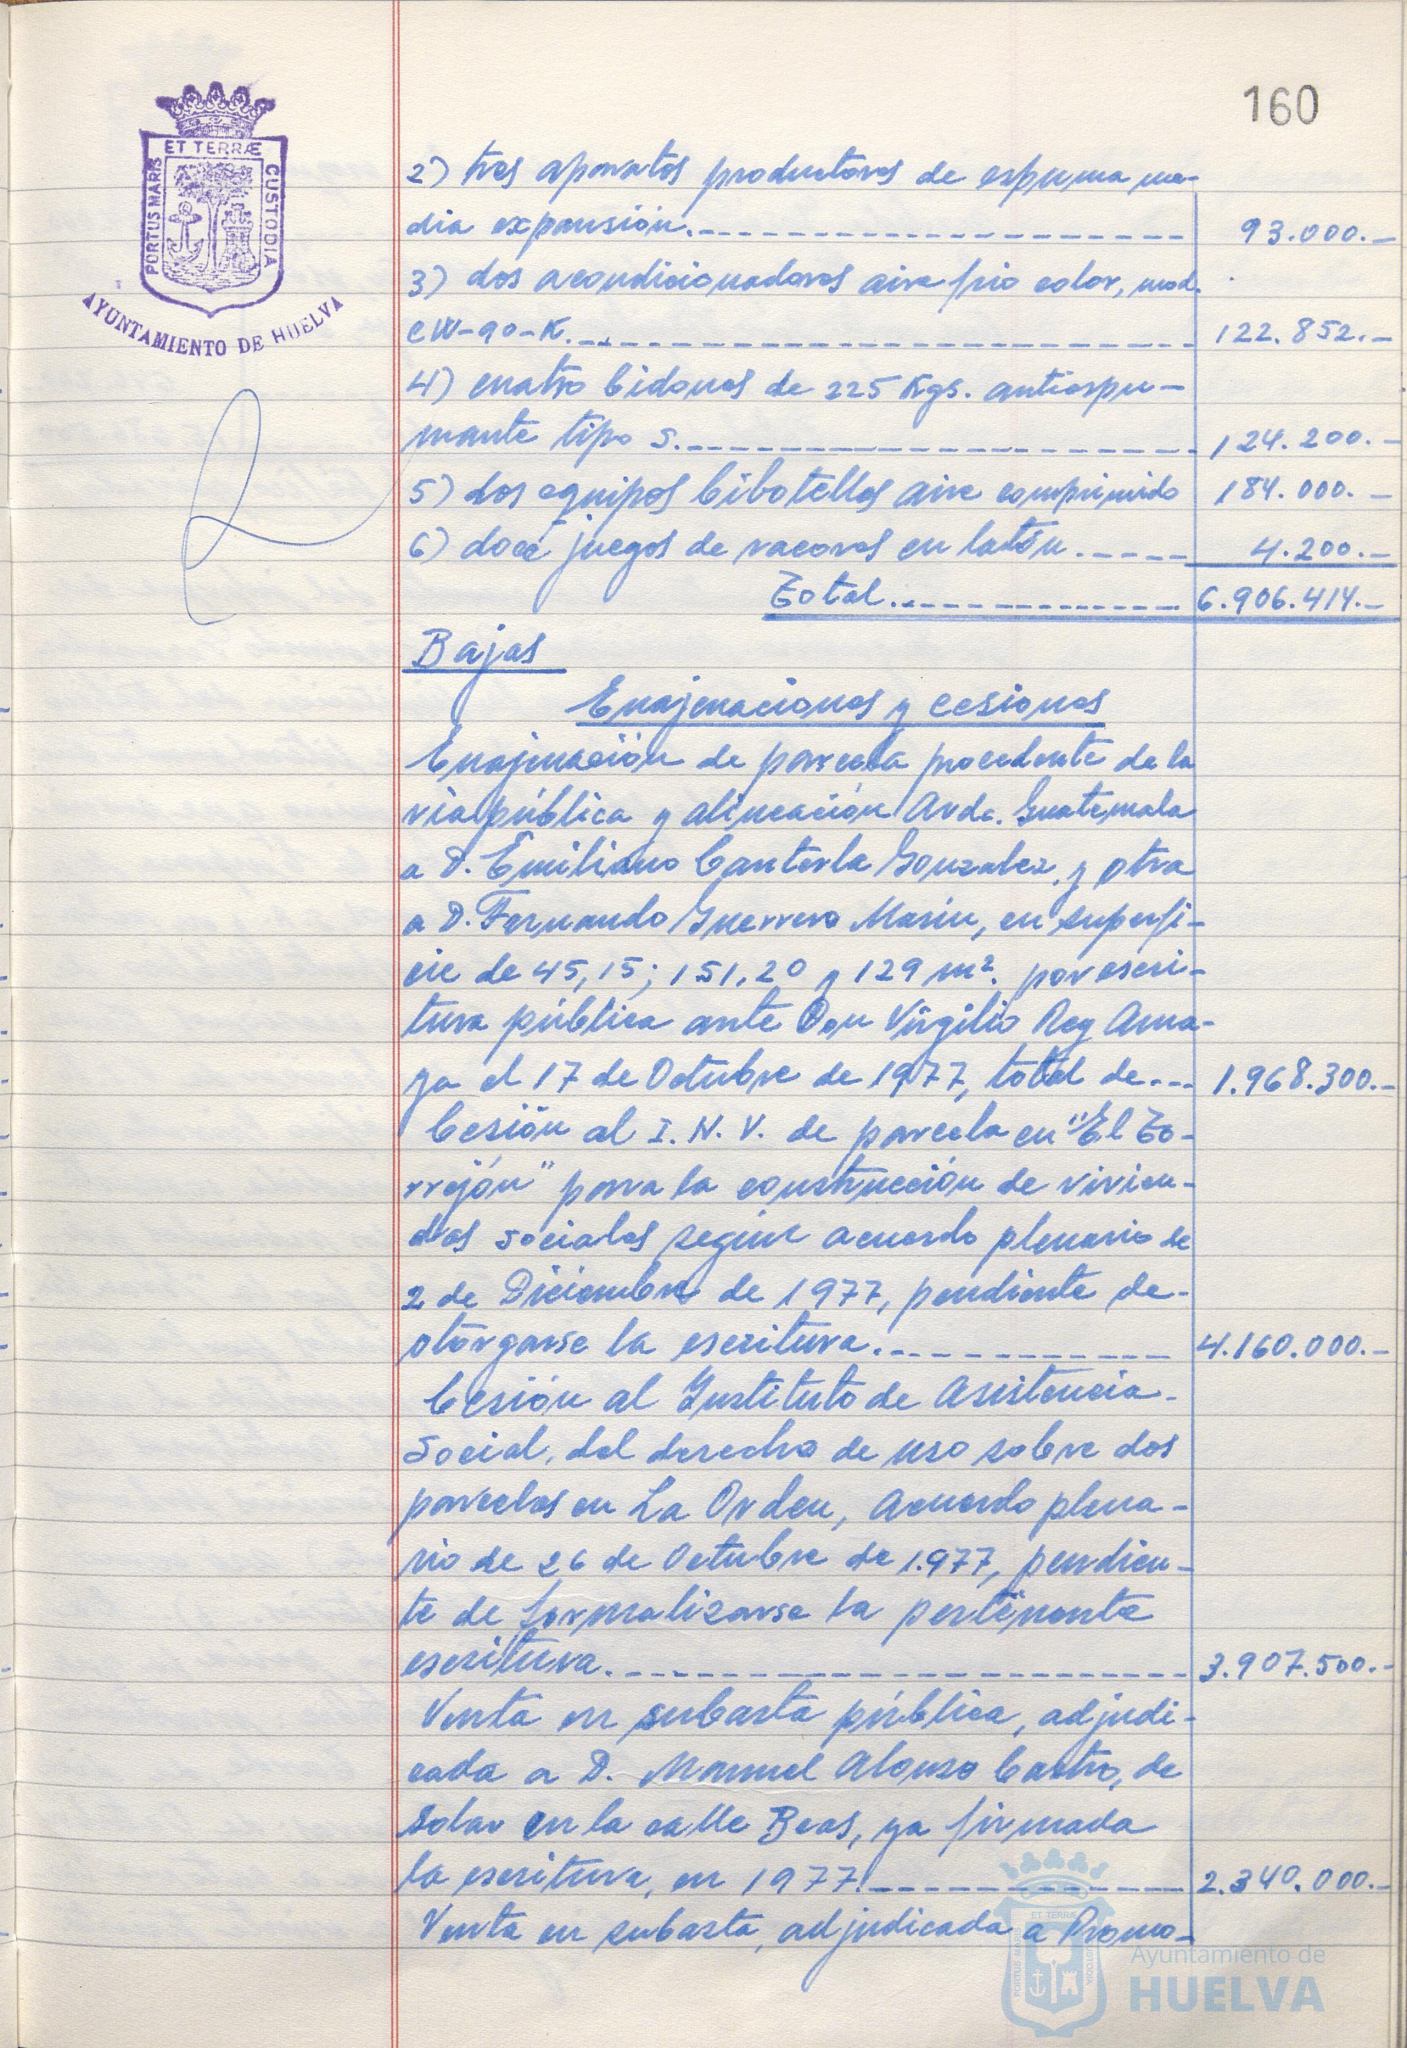 160
ET TERRÆ
PORTUS MARIS
CUSTODIA
AYUNTAMIENTO DE HUELVA
2) tres aparatos productores de espuma me-
dia expansión. 93.000.-
3) dos acondicionadores aire frio color, mod.
CW-90-K. 122.852.-
4) cuatro bidones de 225 Kgs. antiespu-
mante tipo S. 124.200.-
5) dos equipos bibotellas aire comprimido 184.000.-
6) doce juegos de racores en latón. 4.200.-
Total. 6.906.414.-
Bajas
Enajenaciones y cesiones
Enajenación de parcela procedente de la
via pública y alineación Avda. Guatemala
a D. Emiliano Canterla Gonzalez, y otra
a D. Fernando Guerrero Marin, en superfi-
cie de 45,15; 151,20 y 129 m². por escri-
tura pública ante Don Virgilio Rey Ama-
ya el 17 de Octubre de 1977, total de 1.968.300.-
Cesión al I.N.V. de parcela en "El To-
rrejón" para la construcción de vivien-
das sociales según acuerdo plenario de
2 de Diciembre de 1977, pendiente de-
otorgarse la escritura. 4.160.000.-
Cesión al Instituto de Asistencia-
Social, del derecho de uso sobre dos
parcelas en La Orden, acuerdo plena-
rio de 26 de Octubre de 1.977, pendien-
te de formalizarse la pertinente
escritura. 3.907.500.-
Venta en subasta pública, adjudi-
cada a D. Manuel Alonso Castro, de
solar en la calle Beas, ya firmada
la escritura, en 1977. 2.340.000.-
Venta en subasta, adjudicada a Promo-
ET TERRÆ
PORTUS MARIS
CUSTODIA
Ayuntamiento de
HUELVA